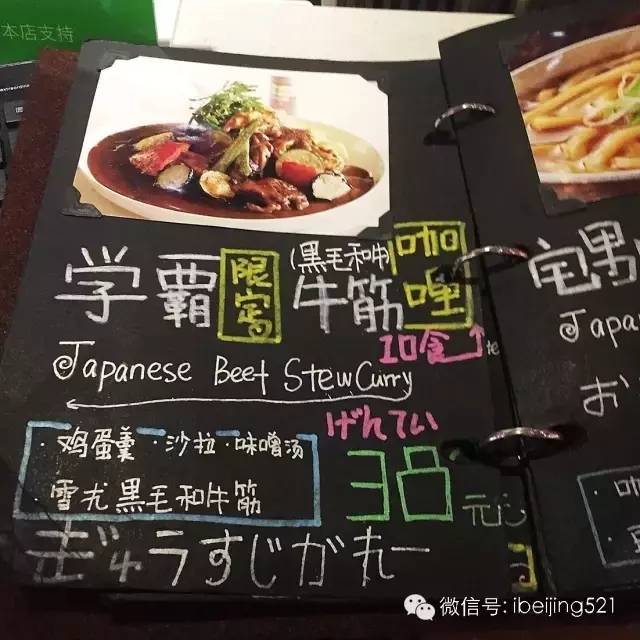 本店支持
学霸限定(黑毛和牛)牛筋咖喱
10食
Japanese Beef Stew Curry
げんてい
·鸡蛋羹·沙拉·味噌汤
雪尤黒毛和牛筋
38元
ぎゅうすじがれー
宅男
Japa
お
·咖
微信号: ibeijing521